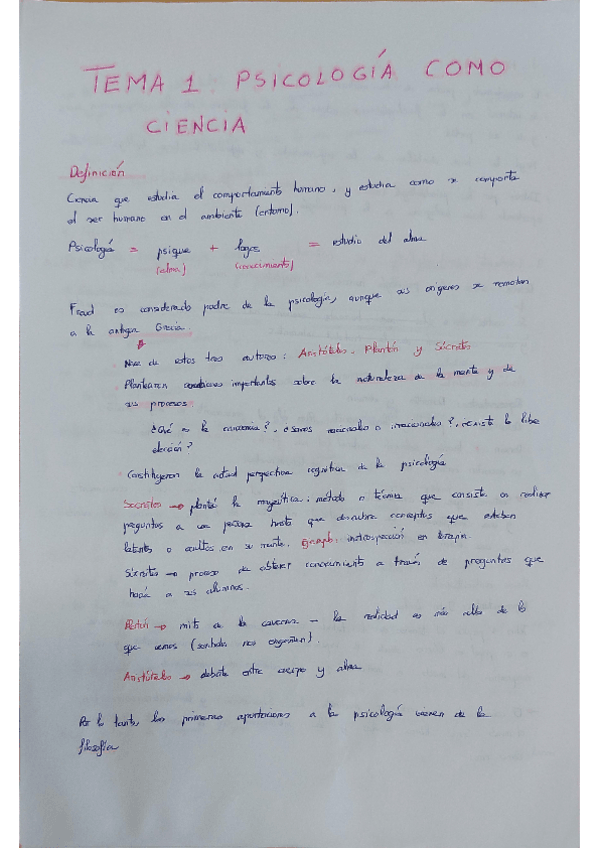 TEMA 1: PSICOLOGÍA COMO
CIENCIA
Definición
Ciencia que estudia el comportamiento humano, y estudia como se comporta
el ser humano en el ambiente (entorno).
Psicología = psique + logos = estudio del alma
(alma) (conocimiento)
Freud es considerado padre de la psicología, aunque sus orígenes se remontan
a la antigua Grecia.
Nace de estos tres autores: Aristóteles, Platón y Sócrates
Plantearon cuestiones importantes sobre la naturaleza de la mente y de
sus procesos.
¿Qué es la conciencia?, ¿somos racionales o irracionales?, ¿existe la libre
elección?
Constituyeron la actual perspectiva cognitiva de la psicología
Socrates → planteó la mayeútica: método o técnica que consiste en realizar
preguntas a una persona hasta que descubra conceptos que estaban
latentes o ocultos en su mente. Ejemplo: introspección en terapia.
Sócrates → proceso de obtener conocimiento a través de preguntas que
hacía a sus alumnos.
Platón → mito de la caverna – la realidad es más allá de lo
que vemos (sentidos nos engañan).
Aristóteles → debate entre cuerpo y alma
Por lo tanto, las primeras aportaciones a la psicología vienen de la
filosofía